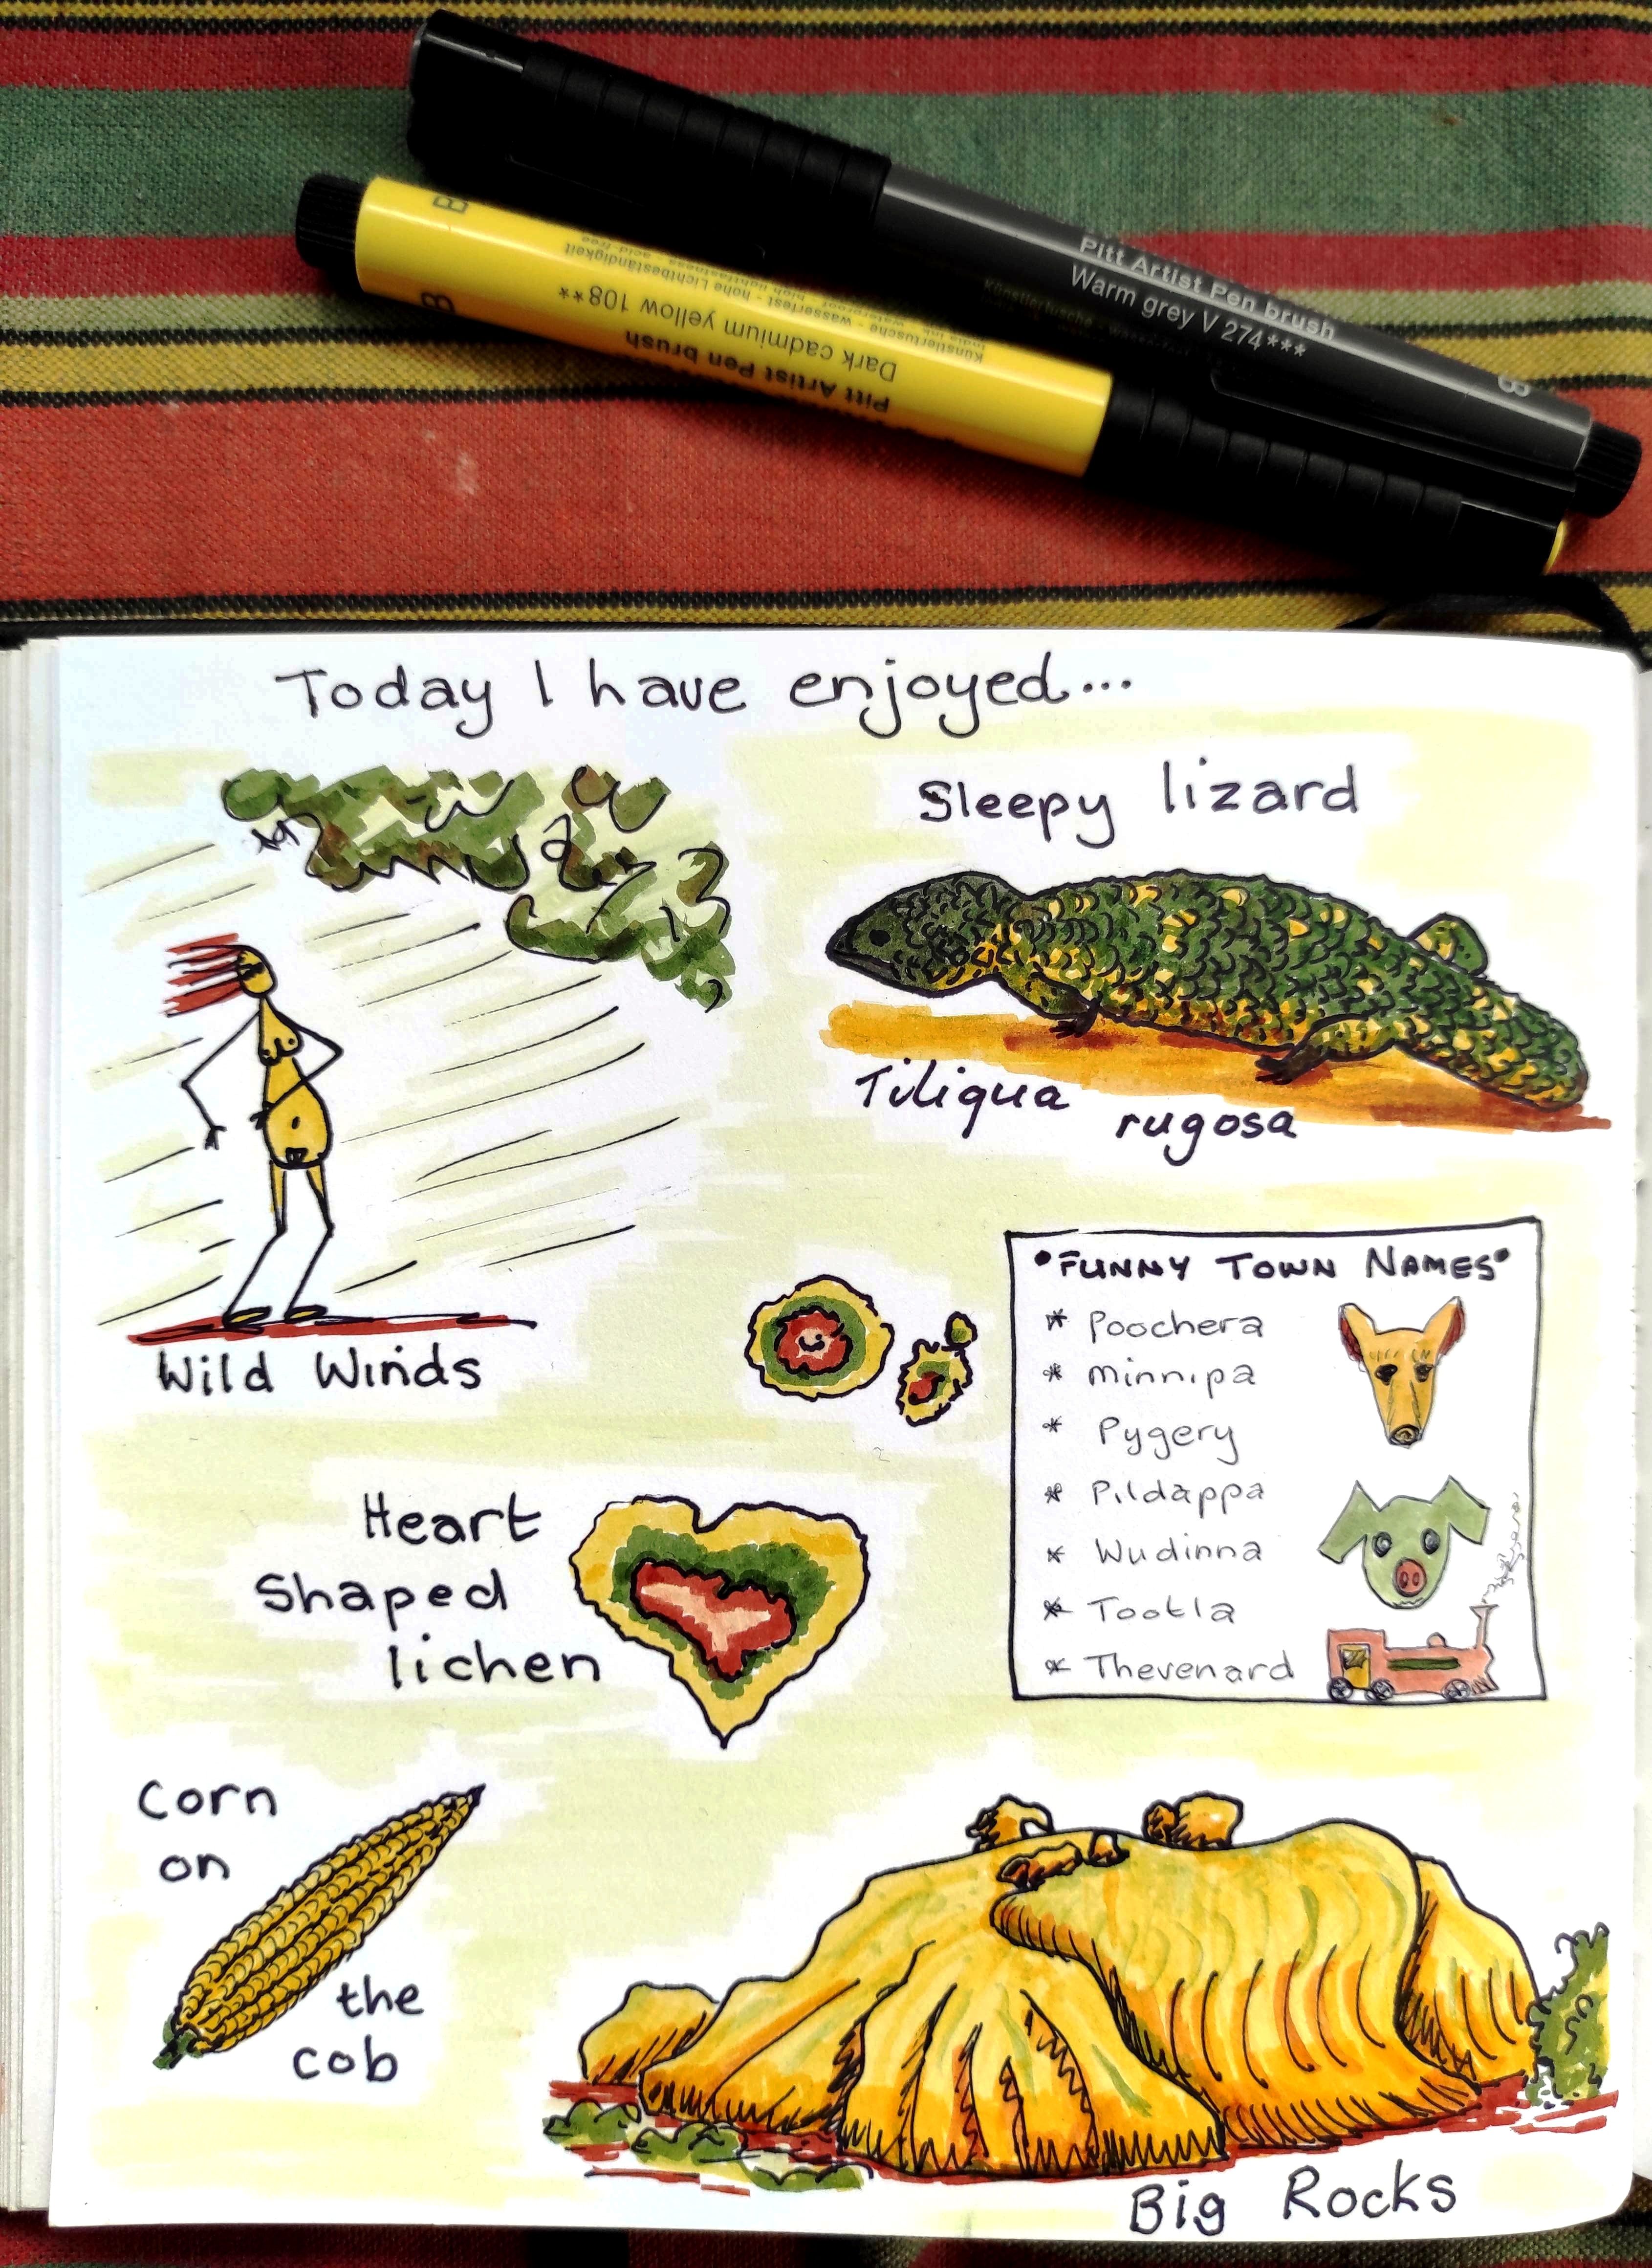 Pitt Artist Pen brush
Warm grey V 274***
B
B
B
Pitt Artist Pen brush
Dark cadmium yellow 108**
Künstlertusche - wasserfest - hohe Lichtbeständigkeit
Today I have enjoyed...
Sleepy lizard
Tiliqua rugosa
Wild Winds
•FUNNY TOWN NAMES•
* Poochera
* Minnipa
* Pygery
* Pildappa
* Wudinna
* Tootla
* Thevenard
Heart
Shaped
lichen
Corn
on
the
cob
Big Rocks